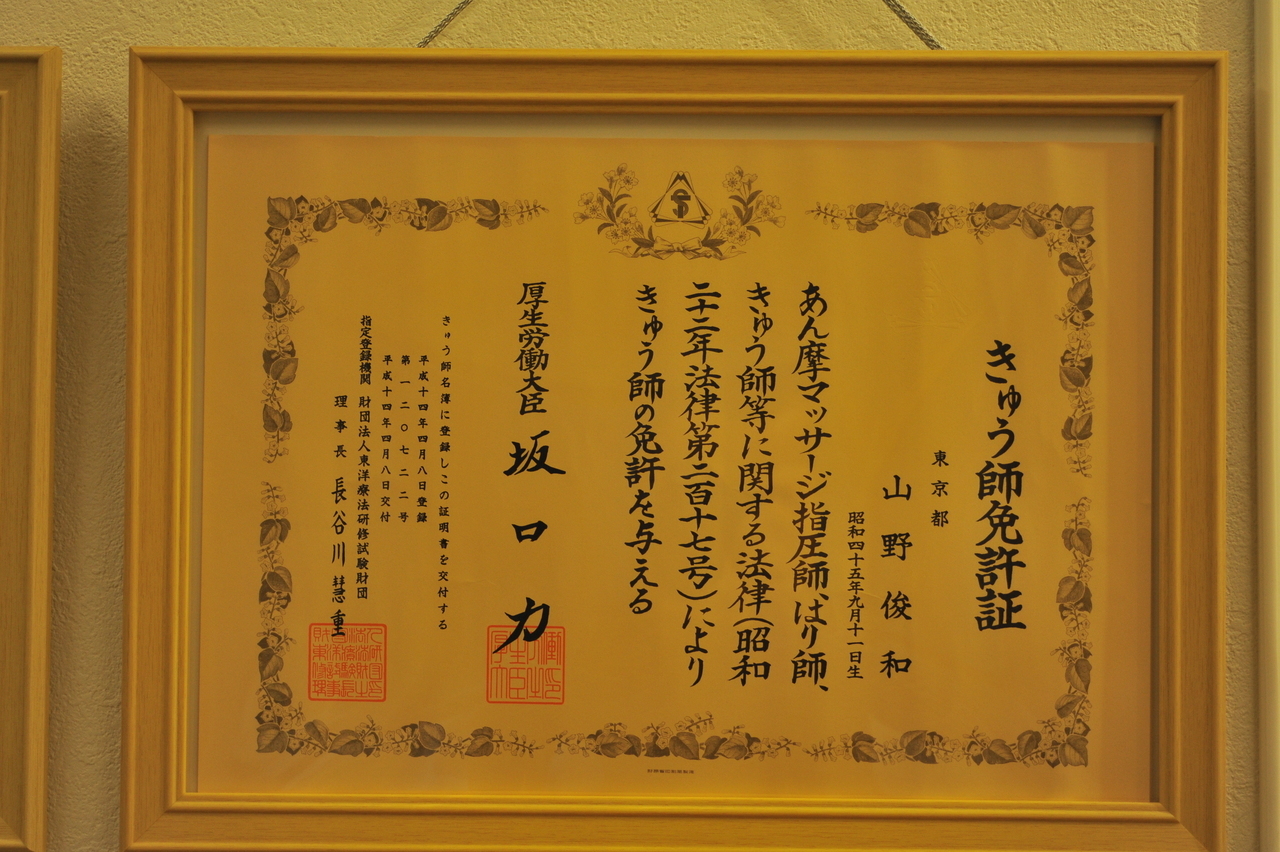 きゅう師免許証
東京都
山野俊和
昭和四十五年九月十一日生
あん摩マッサージ指圧師、はり師、
きゅう師等に関する法律(昭和
二十二年法律第二百十七号)により
きゅう師の免許を与える
厚生労働大臣 坂口力
きゅう師名簿に登録しこの証明書を交付する
平成十四年四月八日登録
第一二〇七二二号
平成十四年四月八日交付
指定登録機関 財団法人東洋療法研修試験財団
理事長 長谷川慧重